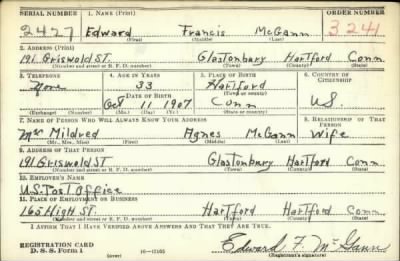 SERIAL NUMBER 1. NAME (Print) ORDER NUMBER
2427 Edward Francis McGann 3241
(First) (Middle) (Last)
2. ADDRESS (Print)
191 Griswold ST. Glastonbury Hartford Conn.
(Number and street or R. F. D. number) (Town) (County) (State)
3. TELEPHONE 4. AGE IN YEARS 5. PLACE OF BIRTH 6. COUNTRY OF CITIZENSHIP
None 33 Hartford
DATE OF BIRTH (Town or county)
Oct 11 1907 Conn U.S.
(Exchange) (Number) (Mo.) (Day) (Yr.) (State or country)
7. NAME OF PERSON WHO WILL ALWAYS KNOW YOUR ADDRESS 8. RELATIONSHIP OF THAT PERSON
Mrs Mildred Agnes McGann Wife
(Mr., Mrs., Miss) (First) (Middle) (Last)
9. ADDRESS OF THAT PERSON
191 Griswold ST. Glastonbury Hartford Conn
(Number and street or R. F. D. number) (Town) (County) (State)
10. EMPLOYER'S NAME
U.S. Post Office
11. PLACE OF EMPLOYMENT OR BUSINESS
165 High ST. Hartford Hartford Conn.
(Number and street or R. F. D. number) (Town) (County) (State)
I AFFIRM THAT I HAVE VERIFIED ABOVE ANSWERS AND THAT THEY ARE TRUE.
REGISTRATION CARD
D. S. S. Form 1 (over) Edward F. McGann
(Registrant's signature)